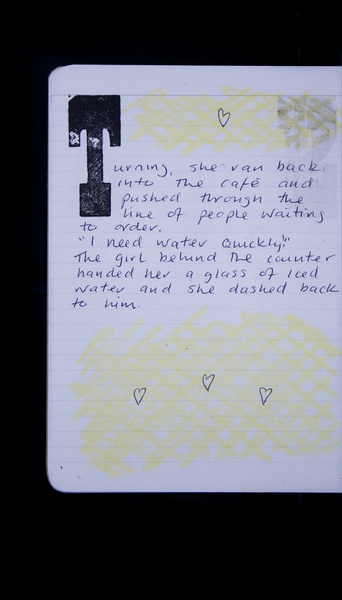 Turning, she ran back
into the café and
pushed through the
line of people waiting
to order.
"I need water quickly!"
The girl behind the counter
handed her a glass of iced
water and she dashed back
to him.